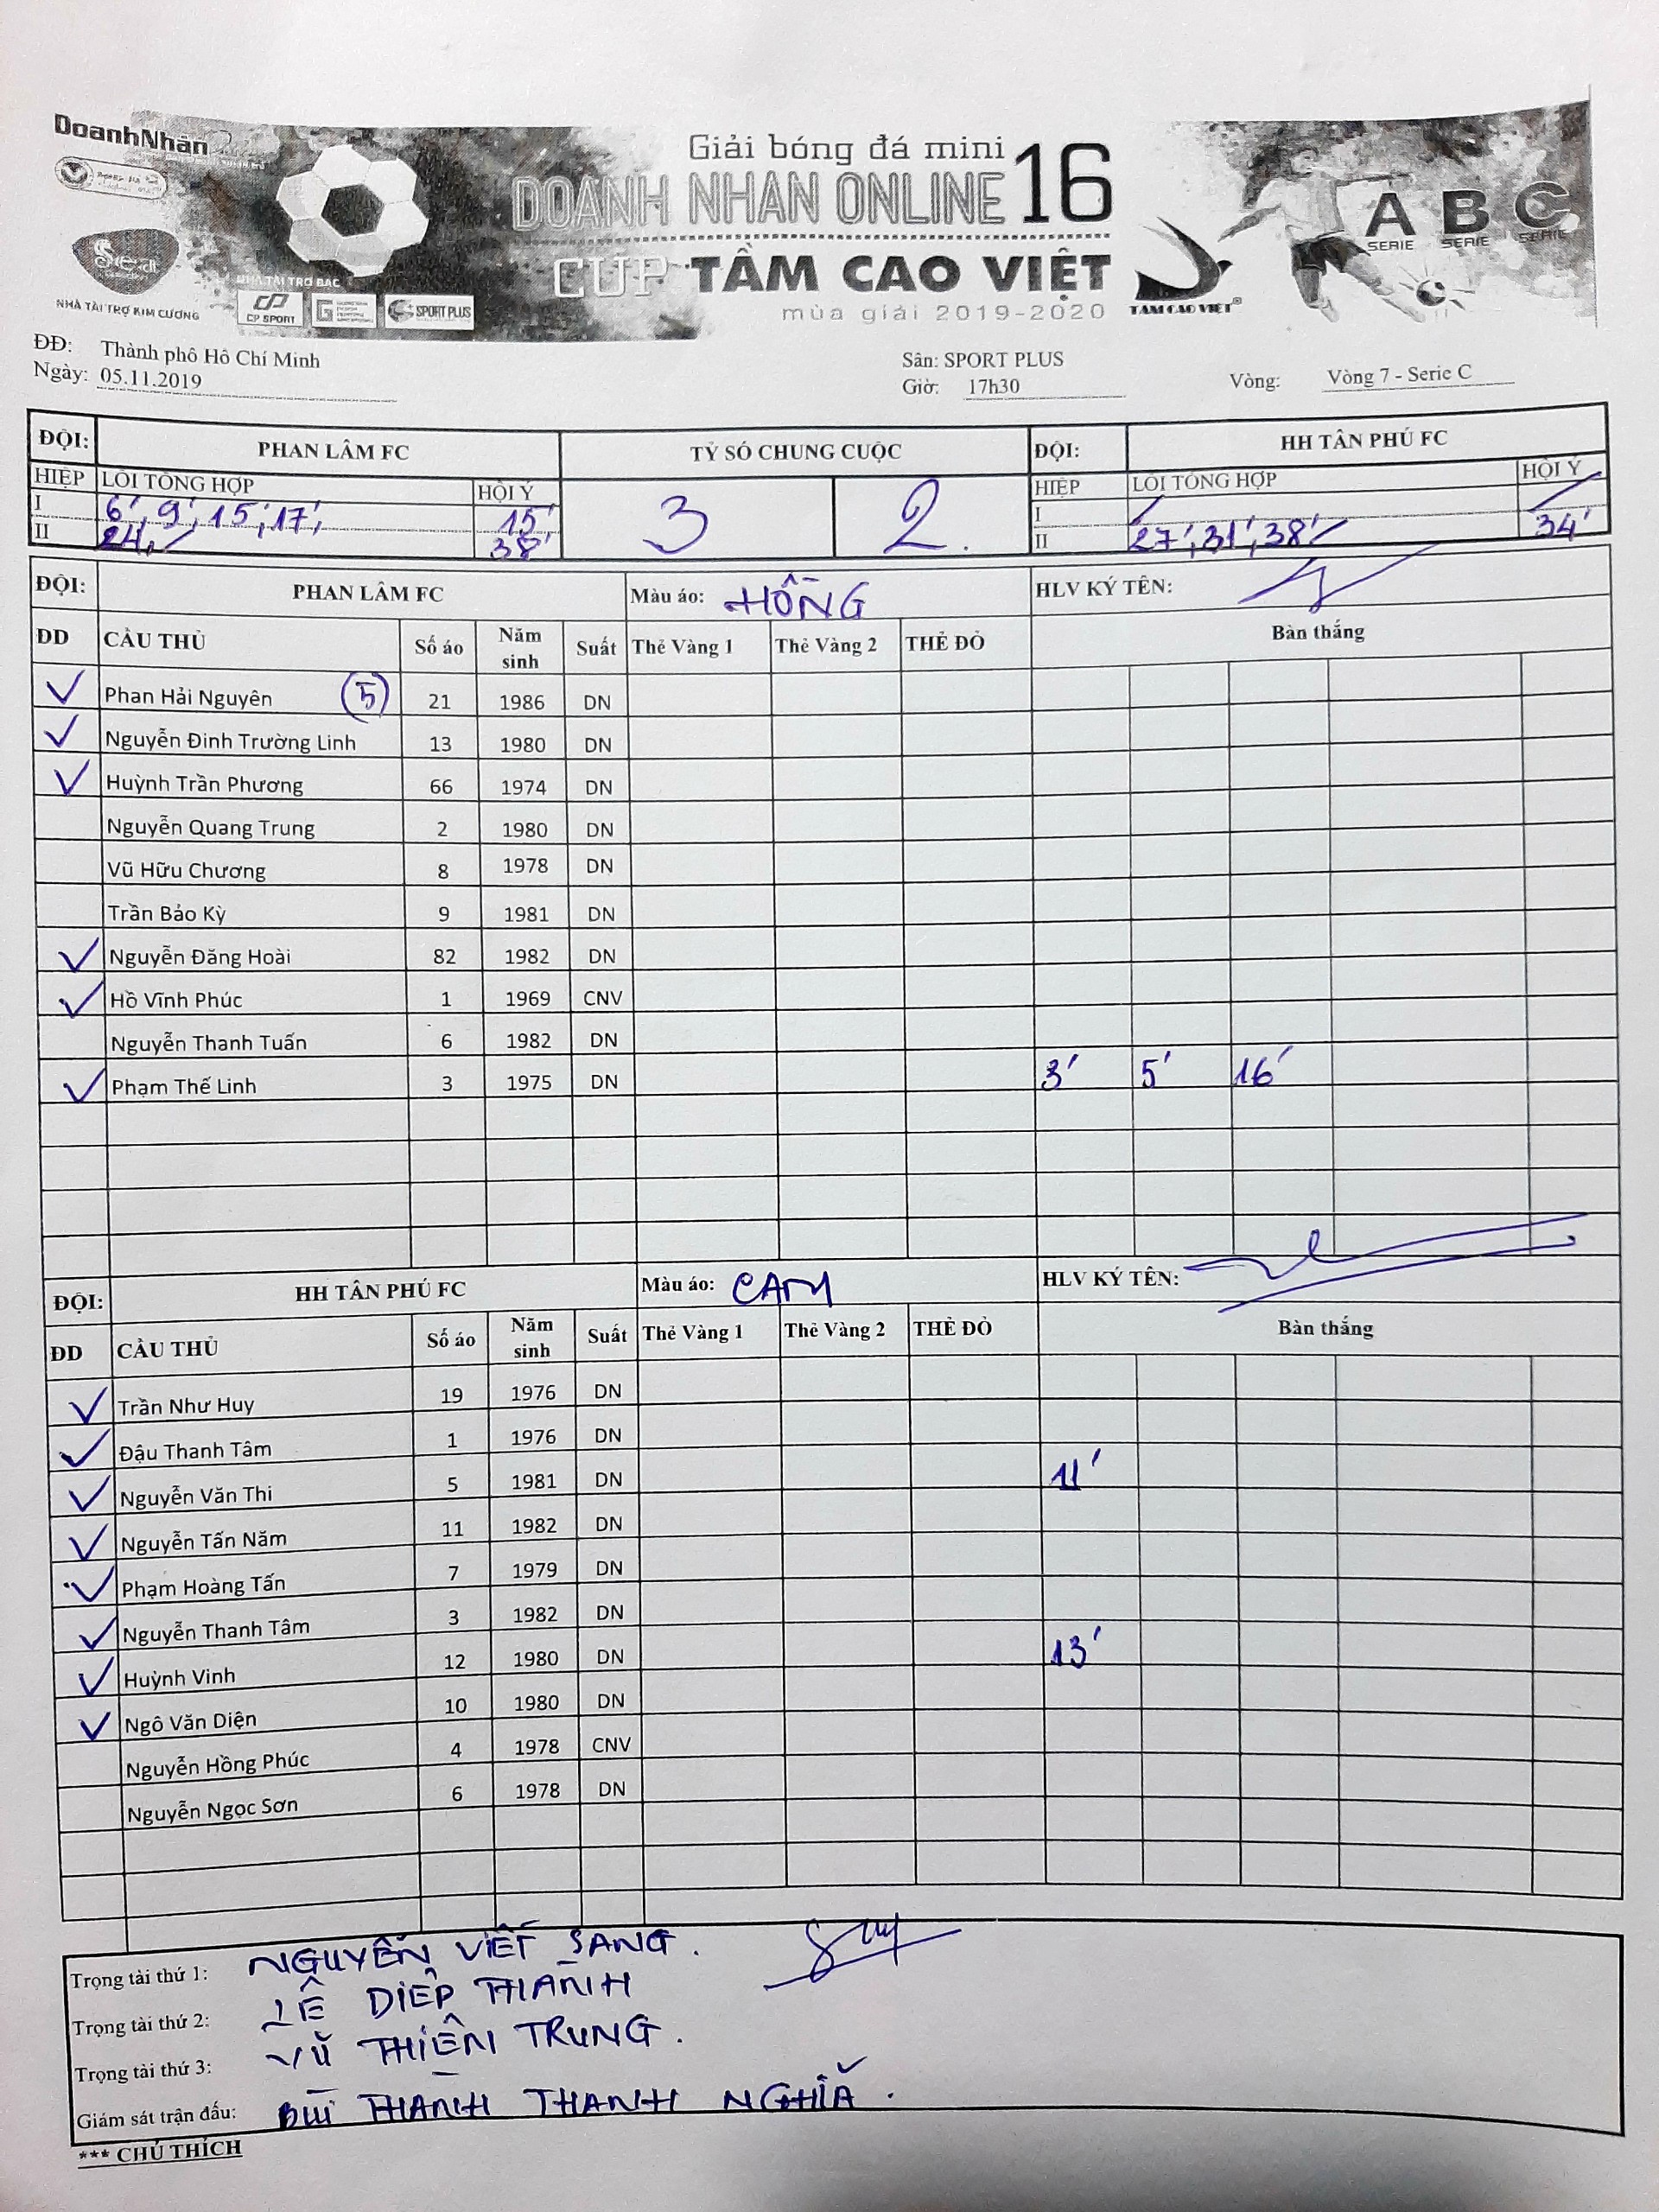 DoanhNhân
Giải bóng đá mini
DOANH NHAN ONLINE 16
CUP TẦM CAO VIỆT
mùa giải 2019-2020
NHÀ TÀI TRỢ KIM CƯƠNG
NHÀ TÀI TRỢ BẠC
CP SPORT
SPORT PLUS
TAM CAO VIET®
A B C
SERIE SERIE SERIE
ĐĐ: Thành phô Hô Chí Minh
Sân: SPORT PLUS
Ngày: 05.11.2019
Giờ: 17h30
Vòng: Vòng 7 - Serie C
ĐỘI: PHAN LÂM FC TỶ SÓ CHUNG CUỘC ĐỘI: HH TÂN PHÚ FC
HIỆP LÕI TỔNG HỢP HỘI Ý 3 2. HIỆP LÕI TỔNG HỢP HỘI Ý
I 6', 9', 15', 17', 15' I /
II 24, 38' II 27', 31', 38' 34'
ĐỘI: PHAN LÂM FC Màu áo: HỒNG HLV KÝ TÊN:
ĐD CẦU THỦ Số áo Năm sinh Suất Thẻ Vàng 1 Thẻ Vàng 2 THẺ ĐỎ Bàn thắng
✓ Phan Hải Nguyên (5) 21 1986 DN
✓ Nguyễn Đinh Trường Linh 13 1980 DN
✓ Huỳnh Trần Phương 66 1974 DN
Nguyễn Quang Trung 2 1980 DN
Vũ Hữu Chương 8 1978 DN
Trần Bảo Kỳ 9 1981 DN
✓ Nguyễn Đăng Hoài 82 1982 DN
✓ Hồ Vĩnh Phúc 1 1969 CNV
Nguyễn Thanh Tuấn 6 1982 DN
✓ Phạm Thế Linh 3 1975 DN 3' 5' 16'
ĐỘI: HH TÂN PHÚ FC Màu áo: CAM HLV KÝ TÊN:
ĐD CẦU THỦ Số áo Năm sinh Suất Thẻ Vàng 1 Thẻ Vàng 2 THẺ ĐỎ Bàn thắng
✓ Trần Như Huy 19 1976 DN
✓ Đậu Thanh Tâm 1 1976 DN
✓ Nguyễn Văn Thi 5 1981 DN 11'
✓ Nguyễn Tấn Năm 11 1982 DN
✓ Phạm Hoàng Tấn 7 1979 DN
✓ Nguyễn Thanh Tâm 3 1982 DN
✓ Huỳnh Vinh 12 1980 DN 13'
✓ Ngô Văn Diện 10 1980 DN
Nguyễn Hồng Phúc 4 1978 CNV
Nguyễn Ngọc Sơn 6 1978 DN
Trọng tài thứ 1: NGUYỄN VIẾT SANG.
Trọng tài thứ 2: LÊ DIỆP THÀNH
Trọng tài thứ 3: VŨ THIÊN TRUNG.
Giám sát trận đấu: BÙI THÀNH THANH NGHĨA.
*** CHÚ THÍCH